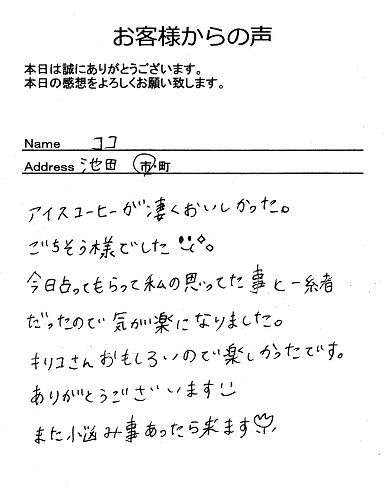 お客様からの声
本日は誠にありがとうございます。
本日の感想をよろしくお願い致します。
Name ココ
Address 池田 市・町
アイスコーヒーが凄くおいしかった。
ごちそう様でした。
今日占ってもらって私の思ってた事と一緒
だったので気が楽になりました。
キリコさんおもしろいので楽しかったです。
ありがとうございます
また小悩み事あったら来ます